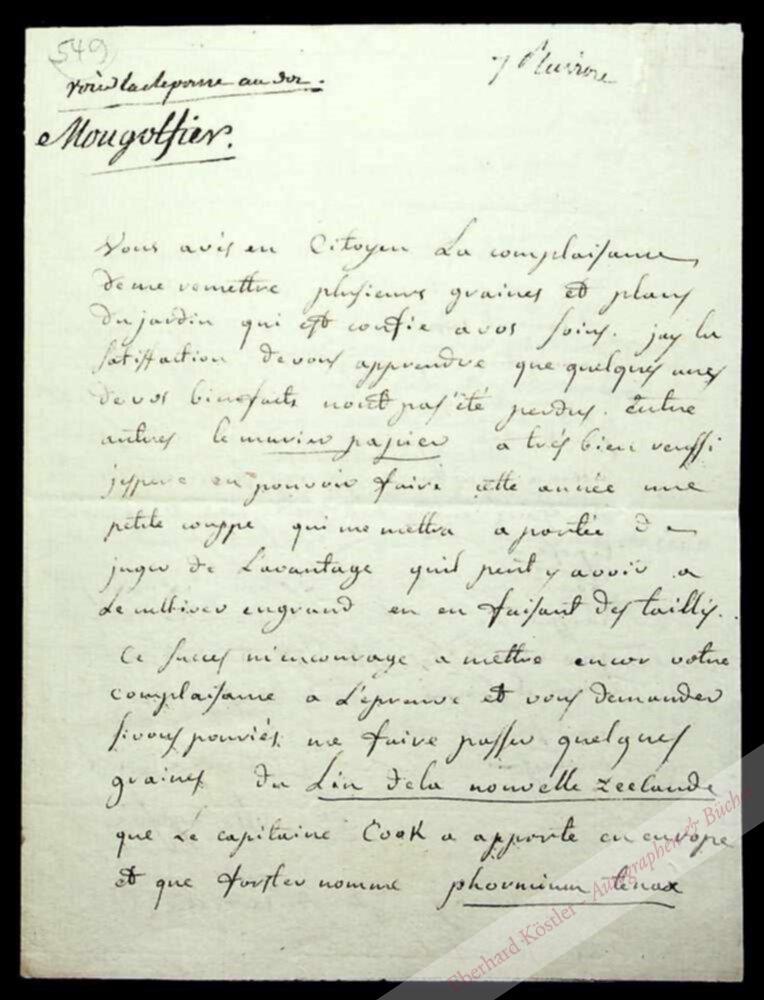 549
7 Pluviose
voiés la reponse au dos.
Mongolfier.
Vous avés eu Citoyen La complaisance
de me remettre plusieurs graines et plans
du jardin qui est confie a vos soins. jay la
satisffaction de vous apprendre que quelques unes
de vos bienfaits nont pas été perdus. entre
autres le murier papier a trés bien reussi
jespere en pouvoir faire cette année une
petite couppe qui me mettra a portée de
juger de L'avantage quil peut y avoir a
Le cultiver en grand en en faisant des taillis.
Ce succes m'encourage a mettre encor votre
complaisance a L'epreuve et vous demander
si vous pouviés me faire passer quelques
graines du Lin de la nouvelle Zeelande
que Le capitaine Cook a apporté en europe
et que forster nomme phormium tenax
Eberhard Köstler - Autographen & Bücher